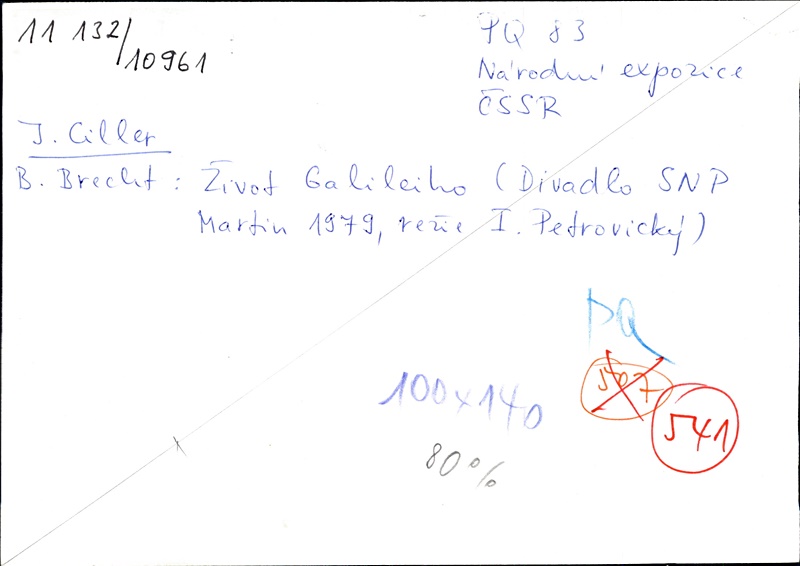 11 132/10961
PQ 83
Národní expozice
ČSSR
J. Ciller
B. Brecht: Život Galileiho (Divadlo SNP
Martin 1979, režie I. Petrovický)
PQ
507
541
100x140
80%